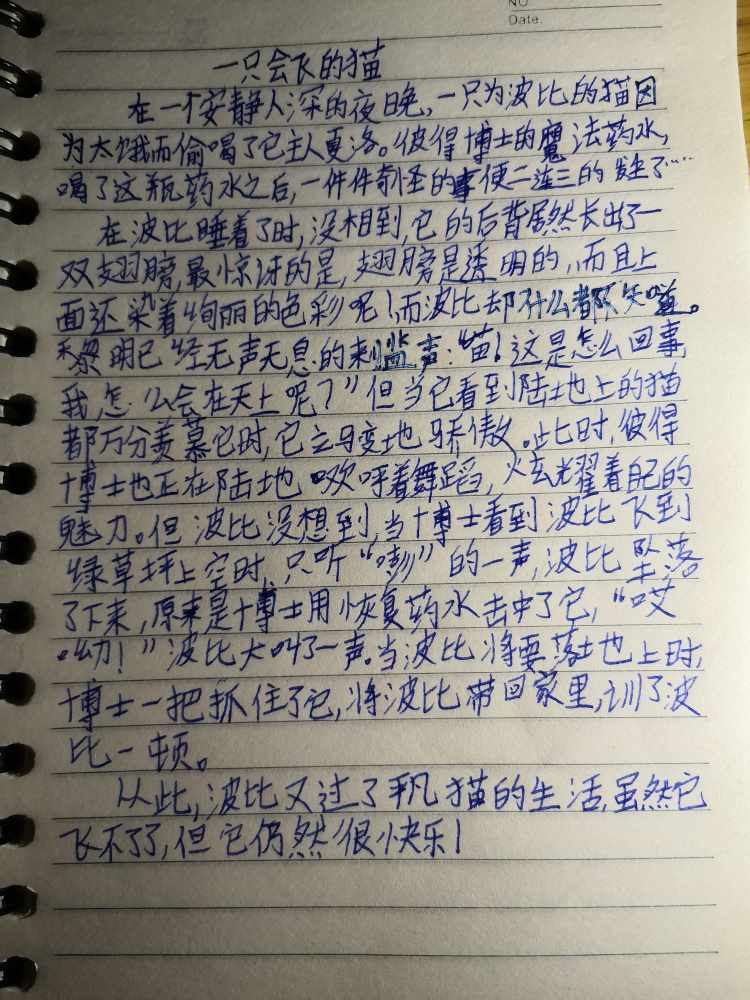 NO
Date.
一只会飞的猫
在一个安静人深的夜晚,一只为波比的猫因
为太饿而偷喝了它主人夏洛。彼得博士的魔法药水,
喝了这瓶药水之后,一件件奇怪的事便二连三的发生了……
在波比睡着了时,没想到,它的后背居然长出了一
双翅膀,最惊讶的是,翅膀是透明的,而且上
面还染着绚丽的色彩呢!而波比却什么都不知道。
黎明已经无声无息的来临声:“喵!这是怎么回事,
我怎么会在天上呢?”但当它看到陆地上的猫
都万分羡慕它时,它立马变地骄傲。此时,彼得
博士也正在陆地欢呼着舞蹈,炫耀着自己的
魅力。但波比没想到,当博士看到波比飞到
绿草坪上空时,只听“嘭”的一声,波比坠落
了下来,原来是博士用恢复药水击中了它,“哎
呦!”波比大叫了一声。当波比将要落土也上时,
博士一把抓住了它,将波比带回家里,训了波
比一顿。
从此,波比又过了平凡猫的生活,虽然它
飞不了了,但它仍然很快乐!